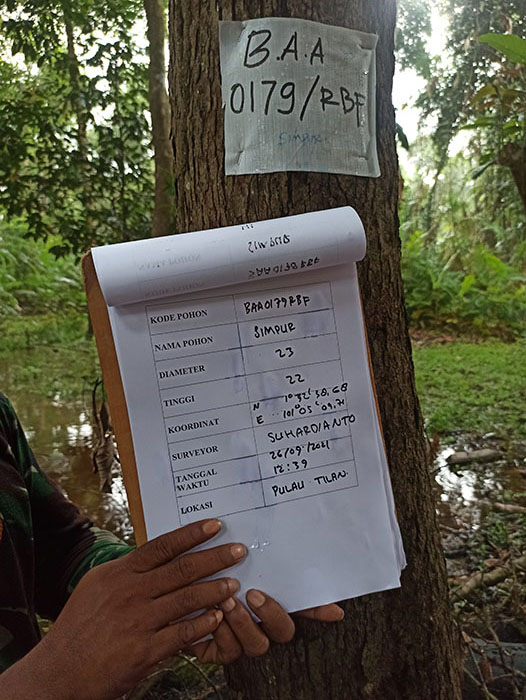 B.A.A
0179/RBF
SIMPUR
KODE POHON BAA0179RBF
NAMA POHON SIMPUR
DIAMETER 23
TINGGI 22
KOORDINAT N 1° 32' 38,68
E 101° 05' 09,71
SURVEYOR SUHARDIANTO
TANGGAL 26/09/2021
WAKTU 12:39
LOKASI PULAU TILAN.